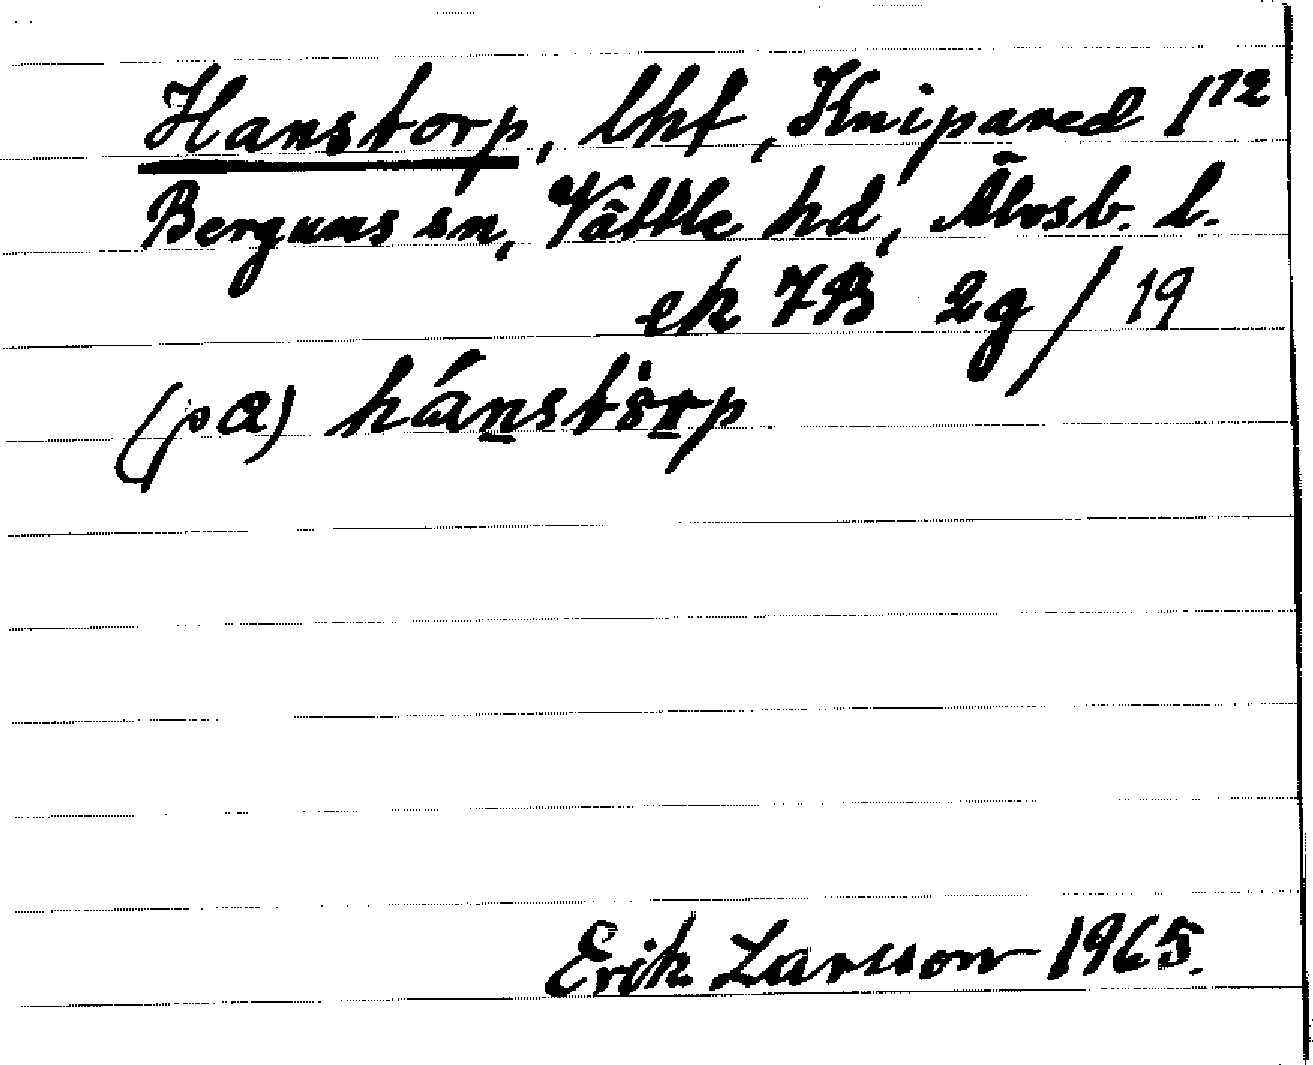 Hanstorp, lhf, Knipared 1¹²
Bergums sn, Vättle hd, Älvsb. l.
ek 7B 2g / 19
(på) hánstòrp
Erik Larsson 1965.